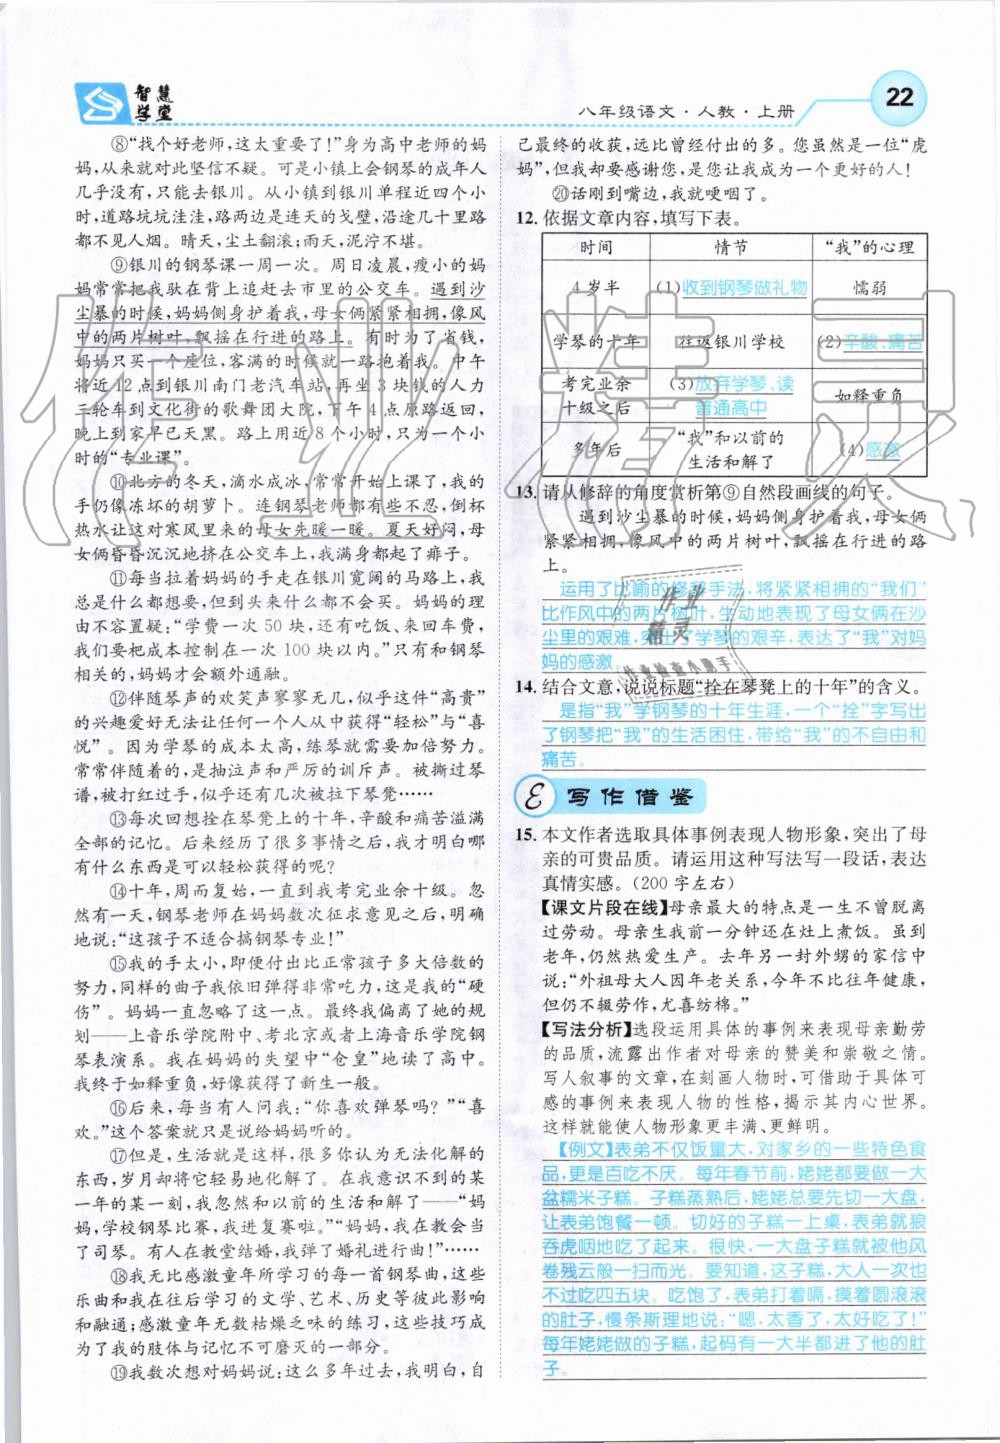 智慧学堂
八年级语文·人教·上册
22
⑧“找个好老师,这太重要了!”身为高中老师的妈
妈,从来就对此坚信不疑。可是小镇上会钢琴的成年人
几乎没有,只能去银川。从小镇到银川单程近四个小
时,道路坑坑洼洼,路两边是连天的戈壁,沿途几十里路
都不见人烟。晴天,尘土翻滚;雨天,泥泞不堪。
⑨银川的钢琴课一周一次。周日凌晨,瘦小的妈
妈常常把我驮在背上追赶去市里的公交车。遇到沙
尘暴的时候,妈妈侧身护着我,母女俩紧紧相拥,像风
中的两片树叶,飘摇在行进的路上。有时为了省钱,
妈妈只买一个座位,客满的时候就一路抱着我。中午
将近12点到银川南门老汽车站,再坐3块钱的人力
三轮车到文化街的歌舞团大院,下午4点原路返回,
晚上到家早已天黑。路上用近8个小时,只为一个小
时的“专业课”。
⑩北方的冬天,滴水成冰,常常开始上课了,我的
手仍像冻坏的胡萝卜。连钢琴老师都有些不忍,倒杯
热水让这对寒风里来的母女先暖一暖。夏天好闷,母
女俩昏昏沉沉地挤在公交车上,我满身都起了痱子。
⑪每当拉着妈妈的手走在银川宽阔的马路上,我
总是什么都想要,但到头来什么都不会买。妈妈的理
由不容置疑:“学费一次50块,还有吃饭、来回车费,
我们要把成本控制在一次100块以内。”只有和钢琴
相关的,妈妈才会额外通融。
⑫伴随琴声的欢笑声寥寥无几,似乎这件“高贵”
的兴趣爱好无法让任何一个人从中获得“轻松”与“喜
悦”。因为学琴的成本太高,练琴就需要加倍努力。
常常伴随着的,是抽泣声和严厉的训斥声。被撕过琴
谱,被打红过手,似乎还有几次被拉下琴凳……
⑬每次回想拴在琴凳上的十年,辛酸和痛苦溢满
全部的记忆。后来经历了很多很多事,我才明白哪有
什么东西是可以轻松获得的呢?
⑭十年,周而复始,一直到我考完业余十级。忽
然有一天,钢琴老师在妈妈数次征求意见之后,明确
地说:“这孩子不适合搞钢琴专业!”
⑮我的手太小,即便付出比正常孩子多大倍数的
努力,同样的曲子我依旧弹得非常吃力,这是我的“硬
伤”。妈妈一直忽略了这一点。最终我偏离了她的规
划——上音乐学院附中、考北京或者上海音乐学院钢
琴表演系。我在妈妈的失望中“仓皇”地读了高中。
我终于如释重负,好像获得了新生一般。
⑯后来,每当有人问我:“你喜欢弹琴吗?”“喜
欢。”这个答案就只是说给妈妈听的。
⑰但是,生活就是这样,很多你认为无法化解的
东西,岁月却将它轻易地化解了。在我意识不到的某
一年的某一刻,我忽然和以前的生活和解了——“妈
妈,学校钢琴比赛,我进复赛啦。”“妈妈,我在教会当
了司琴。有人在教堂结婚,我弹了婚礼进行曲!”……
⑱我无比感激童年所学习的每一首钢琴曲,这些
乐曲和我在往后学习的文学、艺术、历史等彼此影响
和融通;感激童年无数枯燥乏味的练习,这些技巧成
为了我的肢体与记忆不可磨灭的一部分。
⑲我数次想对妈妈说:这么多年过去,我明白,自
己最终的收获,远比曾经付出的多。您虽然是一位“虎
妈”,但我却要感谢您,是您让我成为一个更好的人!
⑳话刚到嘴边,我就哽咽了。
12. 依据文章内容,填写下表。
时间 情节 “我”的心理
4岁半 (1)收到钢琴做礼物 懦弱
学琴的十年 往返银川学校 (2)辛酸、痛苦
考完业余十级之后 (3)放弃学琴、读普通高中 如释重负
多年后 “我”和以前的生活和解了 (4)感激
13. 请从修辞的角度赏析第⑨自然段画线的句子。
遇到沙尘暴的时候,妈妈侧身护着我,母女俩
紧紧相拥,像风中的两片树叶,飘摇在行进的路
上。
运用了比喻的修辞手法,将紧紧相拥的“我们”
比作风中的两片树叶,生动地表现了母女俩在沙
尘里的艰难,突出了学琴的艰辛,表达了“我”对妈
妈的感激。
14. 结合文意,说说标题“拴在琴凳上的十年”的含义。
是指“我”学钢琴的十年生涯,一个“拴”字写出
了钢琴把“我”的生活困住,带给“我”的不自由和
痛苦。
E 写作借鉴
15. 本文作者选取具体事例表现人物形象,突出了母
亲的可贵品质。请运用这种写法写一段话,表达
真情实感。(200字左右)
【课文片段在线】母亲最大的特点是一生不曾脱离
过劳动。母亲生我前一分钟还在灶上煮饭。虽到
老年,仍然热爱生产。去年另一封外甥的家信中
说:“外祖母大人因年老关系,今年不比往年健康,
但仍不辍劳作,尤喜纺棉。”
【写法分析】选段运用具体的事例来表现母亲勤劳
的品质,流露出作者对母亲的赞美和崇敬之情。
写人叙事的文章,在刻画人物时,可借助于具体可
感的事例来表现人物的性格,揭示其内心世界。
这样就能使人物形象更丰满、更鲜明。
【例文】表弟不仅饭量大,对家乡的一些特色食
品,更是百吃不厌。每年春节前,姥姥都要做一大
盆糯米子糕。子糕蒸熟后,姥姥总要先切一大盘,
让表弟饱餐一顿。切好的子糕一上桌,表弟就狼
吞虎咽地吃了起来。很快,一大盘子糕就被他风
卷残云般一扫而光。要知道,这子糕,大人一次也
不过吃四五块。吃饱了,表弟打着嗝,摸着圆滚滚
的肚子,慢条斯理地说:“嗯,太香了,太好吃了!”
每年姥姥做的子糕,起码有一大半都进了他的肚
子。
作业精灵
作业精灵
作业检查小助手